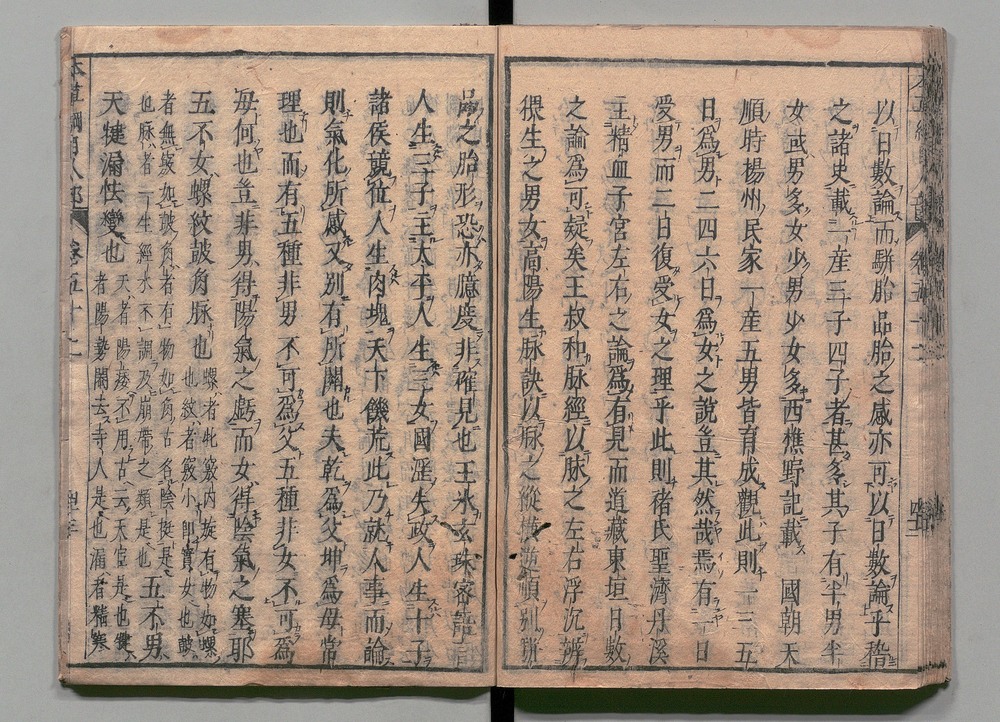 以日數論而駢胎品胎之感亦可以日數論乎稽
之諸史載一産三子四子者甚多其子有半男半
女或男多女少男少女多西樵野記載國朝天
順時揚州民家一産五男皆育成觀此則一三五
日爲男二四六日爲女之說豈其然哉焉有一日
受男而二日復受女之理乎此則褚氏聖濟丹溪
主精血子宮左右之論爲有見而道藏東垣日數
之論爲可疑矣王叔和脉經以脉之左右浮沉辨
猥生之男女高陽生脉訣以脉之縱橫逆順別駢
品之胎形恐亦臆度非確見也王氷玄珠密語言
人生三子主太平人生三女國淫失政人生十子
諸侯競位人生肉塊天下饑荒此乃就人事而論
則氣化所感又別有所關也夫乾爲父坤爲母常
理也而有五種非男不可爲父五種非女不可爲
母何也豈非男得陽氣之虧而女得陰氣之塞耶
五不女螺紋鼓角脉也
螺者牝竅内旋有物如螺
也紋者竅小即實女也鼓
者無竅如鼓角者有物如肉古名陰挺是
也脉者一生經水不調及崩帶之類是也
五不男
天犍漏怯變也
天者陽痿不用古云天宦是也犍
者陽勢閹去寺人是也漏者精寒
本草綱目人部
卷五十二